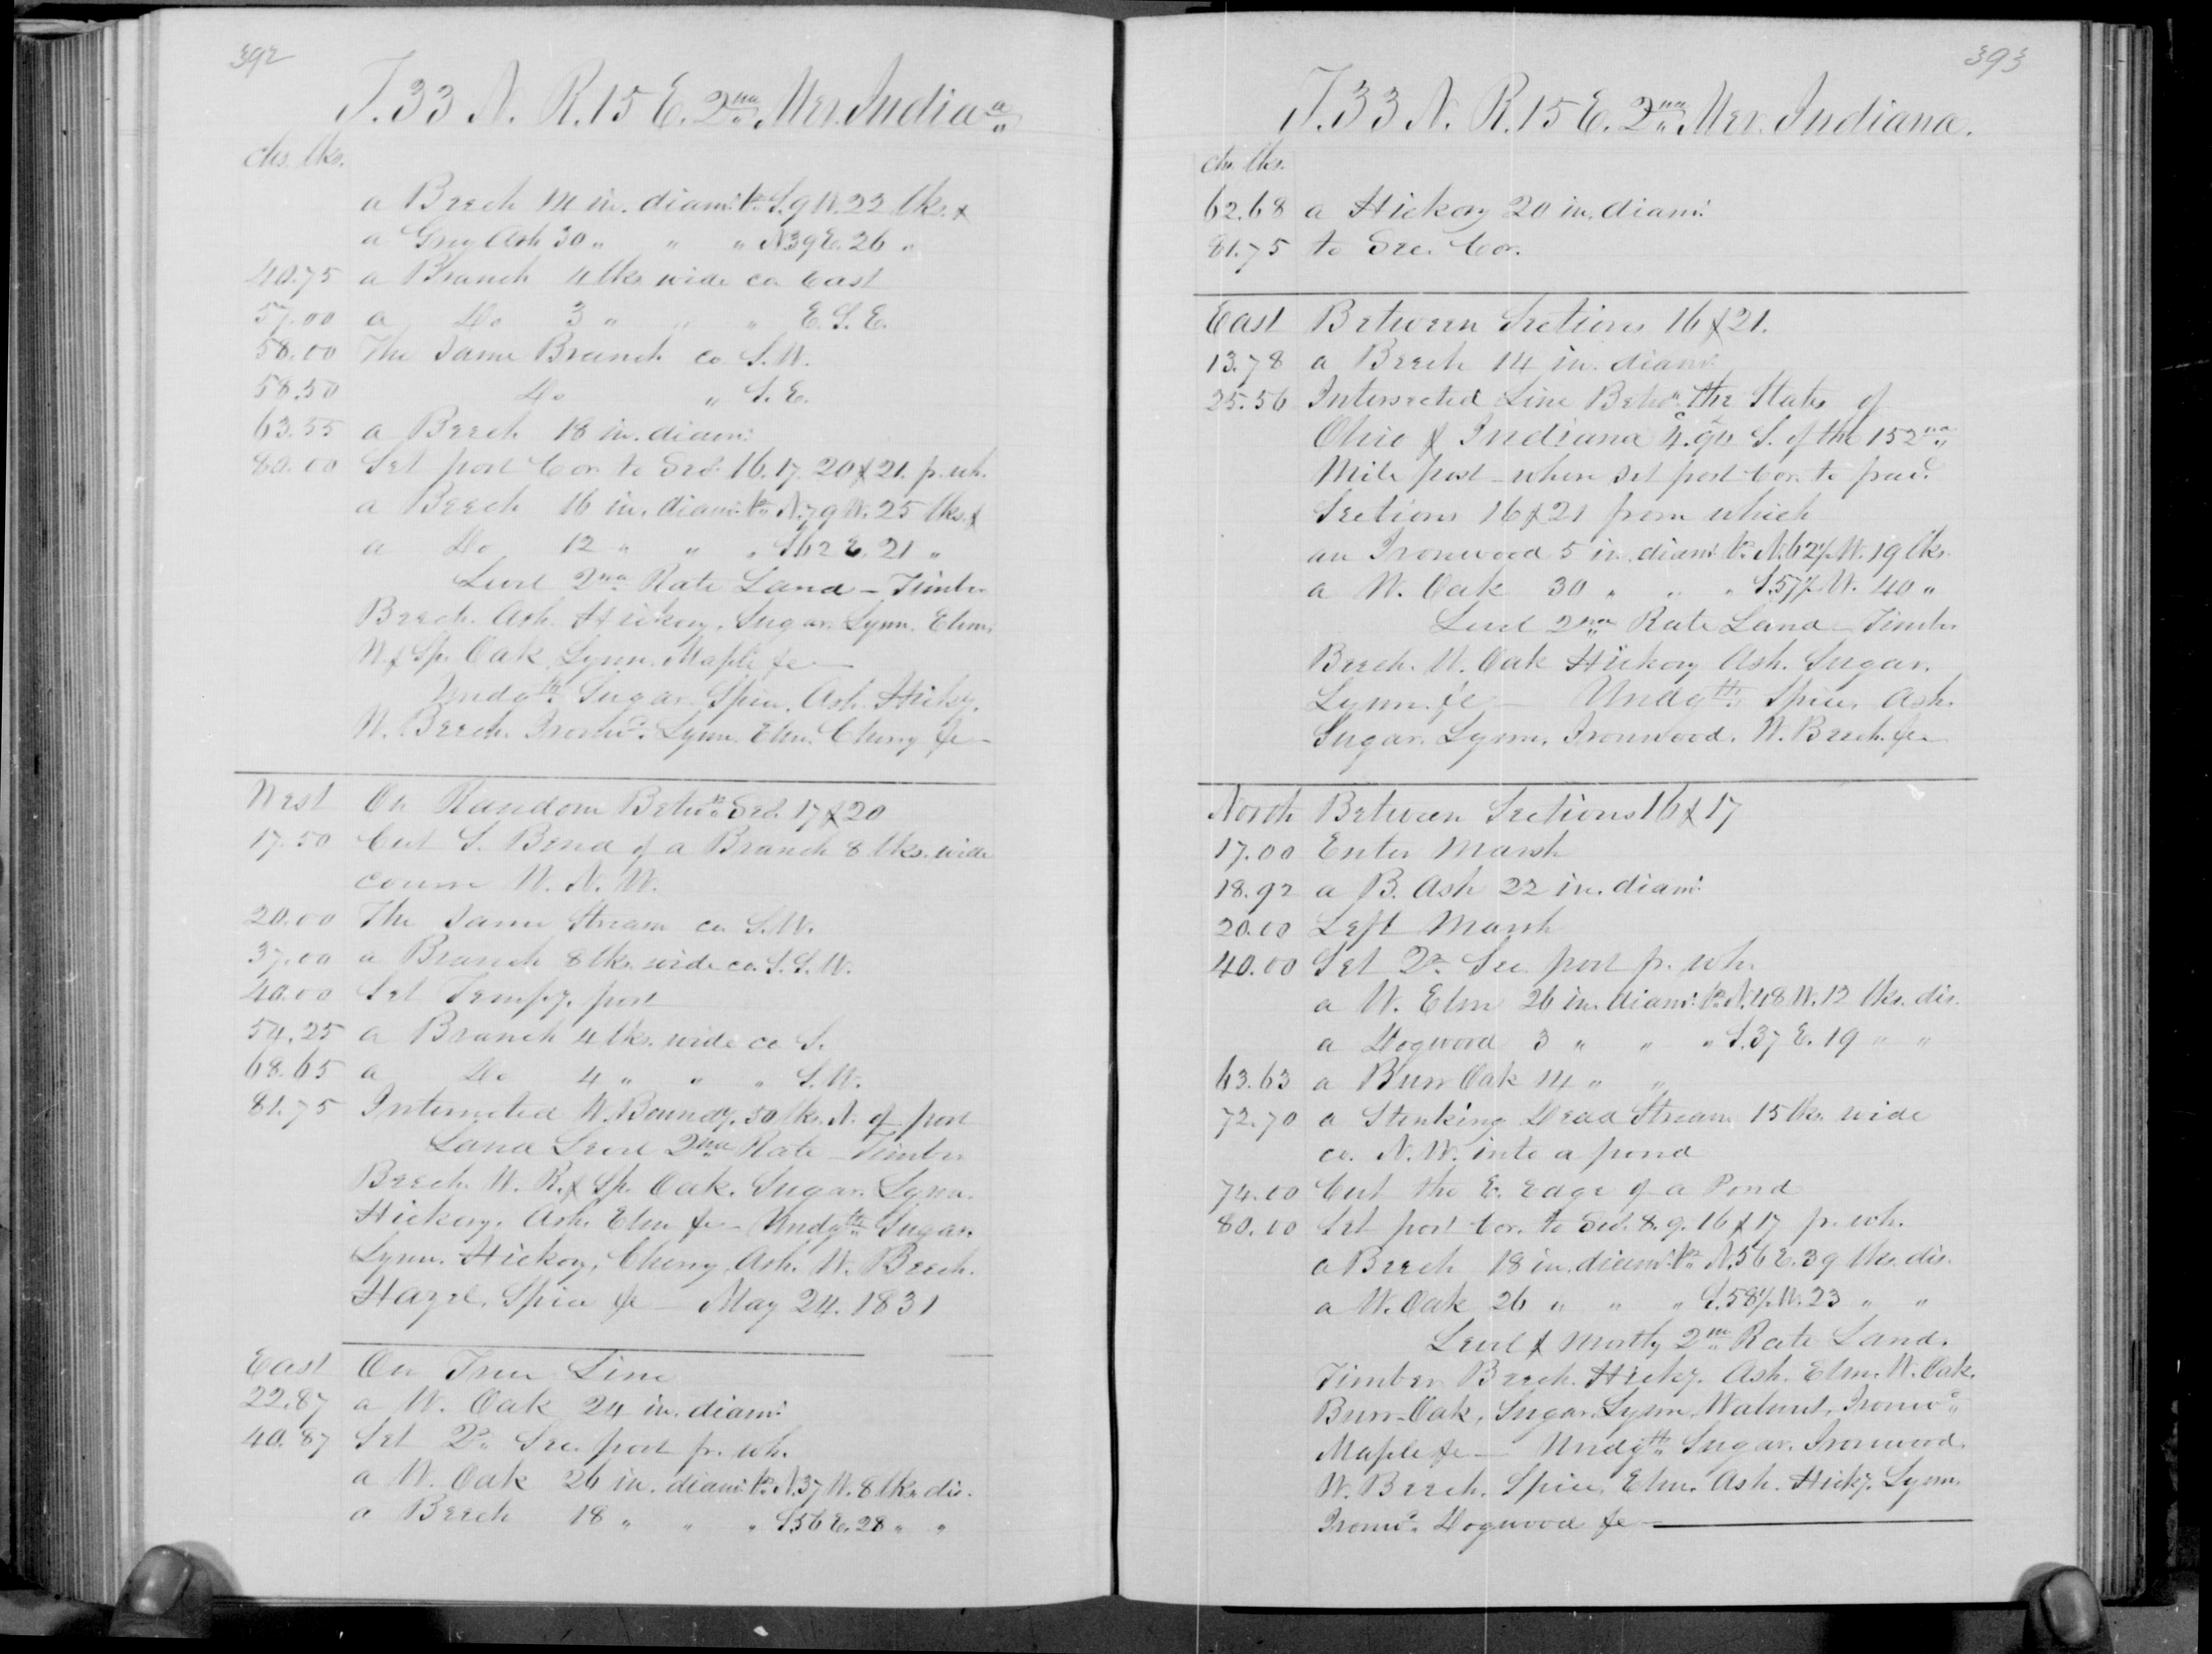 392
T. 33 N. R. 15 E. 2nd Mer. Indiaa
chs. lks.
a Beech 14 in. diam. brs. S. 9 W. 22 lks. &
a Grey Ash 30 " " " N 39 E. 26 "
40.75 a Branch 4 lks wide co. East
57.00 a Do 3 " " " E. S. E.
58.00 The Same Branch co. S. W.
58.50 Do " S. E.
63.55 a Beech 18 in. diam.
80.00 Set post Cor. to Secs. 16. 17. 20 & 21. fr. wh.
a Beech 16 in. diam. brs. N. 79 W. 25 lks. &
a Do 12 " " " S 62 E. 21 "
Level 2nd Rate Land - Timber
Beech. Ash. Hickory, Sugar. Lynn. Elm.
W. & Sp. Oak, Lynn. Maple &c
Undgth. Sugar. Spice. Ash. Hicky.
W. Beech. Ironwd. Lynn. Elm. Cherry &c
West On Random Betwn. Secs. 17 & 20
17.50 Cut S. Bend of a Branch 8 lks. wide
course W. N. W.
20.00 The Same Stream co. S. W.
37.00 a Branch 8 lks. wide co. S. S. W.
40.00 Set Tempy. post
54.25 a Branch 4 lks. wide co S.
68.65 a Do 4 " " " S. W.
81.75 Intersected W. Boundy. 50 lks. N. of post
Land Level 2nd Rate - Timber
Beech. W. R. & Sp. Oak. Sugar. Lynn.
Hickory. Ash. Elm &c - Undgth. Sugar.
Lynn. Hickory, Cherry, Ash. W. Beech.
Hazel. Spice &c - May 24. 1831
East On True Line
22.87 a W. Oak 24 in. diam.
40.87 Set Qr. Sec. post fr. wh.
a W. Oak 26 in. diam. brs. N. 37 W. 8 lks. dis.
a Beech 18 " " " S 56 E. 28 " "
393
T. 33 N. R. 15 E. 2nd Mer. Indiana.
ch. lks.
62.68 a Hickory 20 in. diam.
81.75 to Sec. Cor.
East Between Sections 16 & 21.
13.78 a Beech 14 in. diam.
25.56 Intersected Line Betwn. the States of
Ohio & Indiana S. of the 152nd
Mile post - where set post Cor. to frac.
Sections 16 & 21 from which
an Ironwood 5 in. diam. brs. N. 62½ W. 19 lks.
a W. Oak 30 " " " S. 57½ W. 40 "
Level 2nd Rate Land - Timber
Beech. W. Oak Hickory Ash. Sugar.
Lynn &c - Undgth. Spice. Ash.
Sugar. Lynn, Ironwood. W. Beech. &c
North Between Sections 16 & 17
17.00 Enter Marsh
18.92 a B. Ash 22 in. diam.
20.00 Left Marsh
40.00 Set Qr. Sec. post fr. wh.
a W. Elm 26 in. diam. brs. N. 48 W. 12 lks. dis.
a Dogwood 3 " " " S. 37 E. 19 " "
63.63 a Burr Oak 14 " "
72.70 a Stinking Dead Stream 15 lks. wide
co. N. W. into a pond
74.00 Cut the E. Edge of a Pond
80.00 Set post Cor. to Secs. 8. 9. 16 & 17 fr. wh.
a Beech 18 in. diam. brs. N. 56 E. 39 lks. dis.
a W. Oak 26 " " " S. 58½ W. 23 " "
Level & mostly 2nd Rate Land.
Timber Beech. Hicky. Ash. Elm. W. Oak.
Burr-Oak, Sugar. Lynn, Walnut, Ironwd.
Maple &c - Undgth. Sugar. Ironwood.
W. Beech. Spice, Elm. Ash. Hicky. Lynn.
Ironwd. Dogwood &c